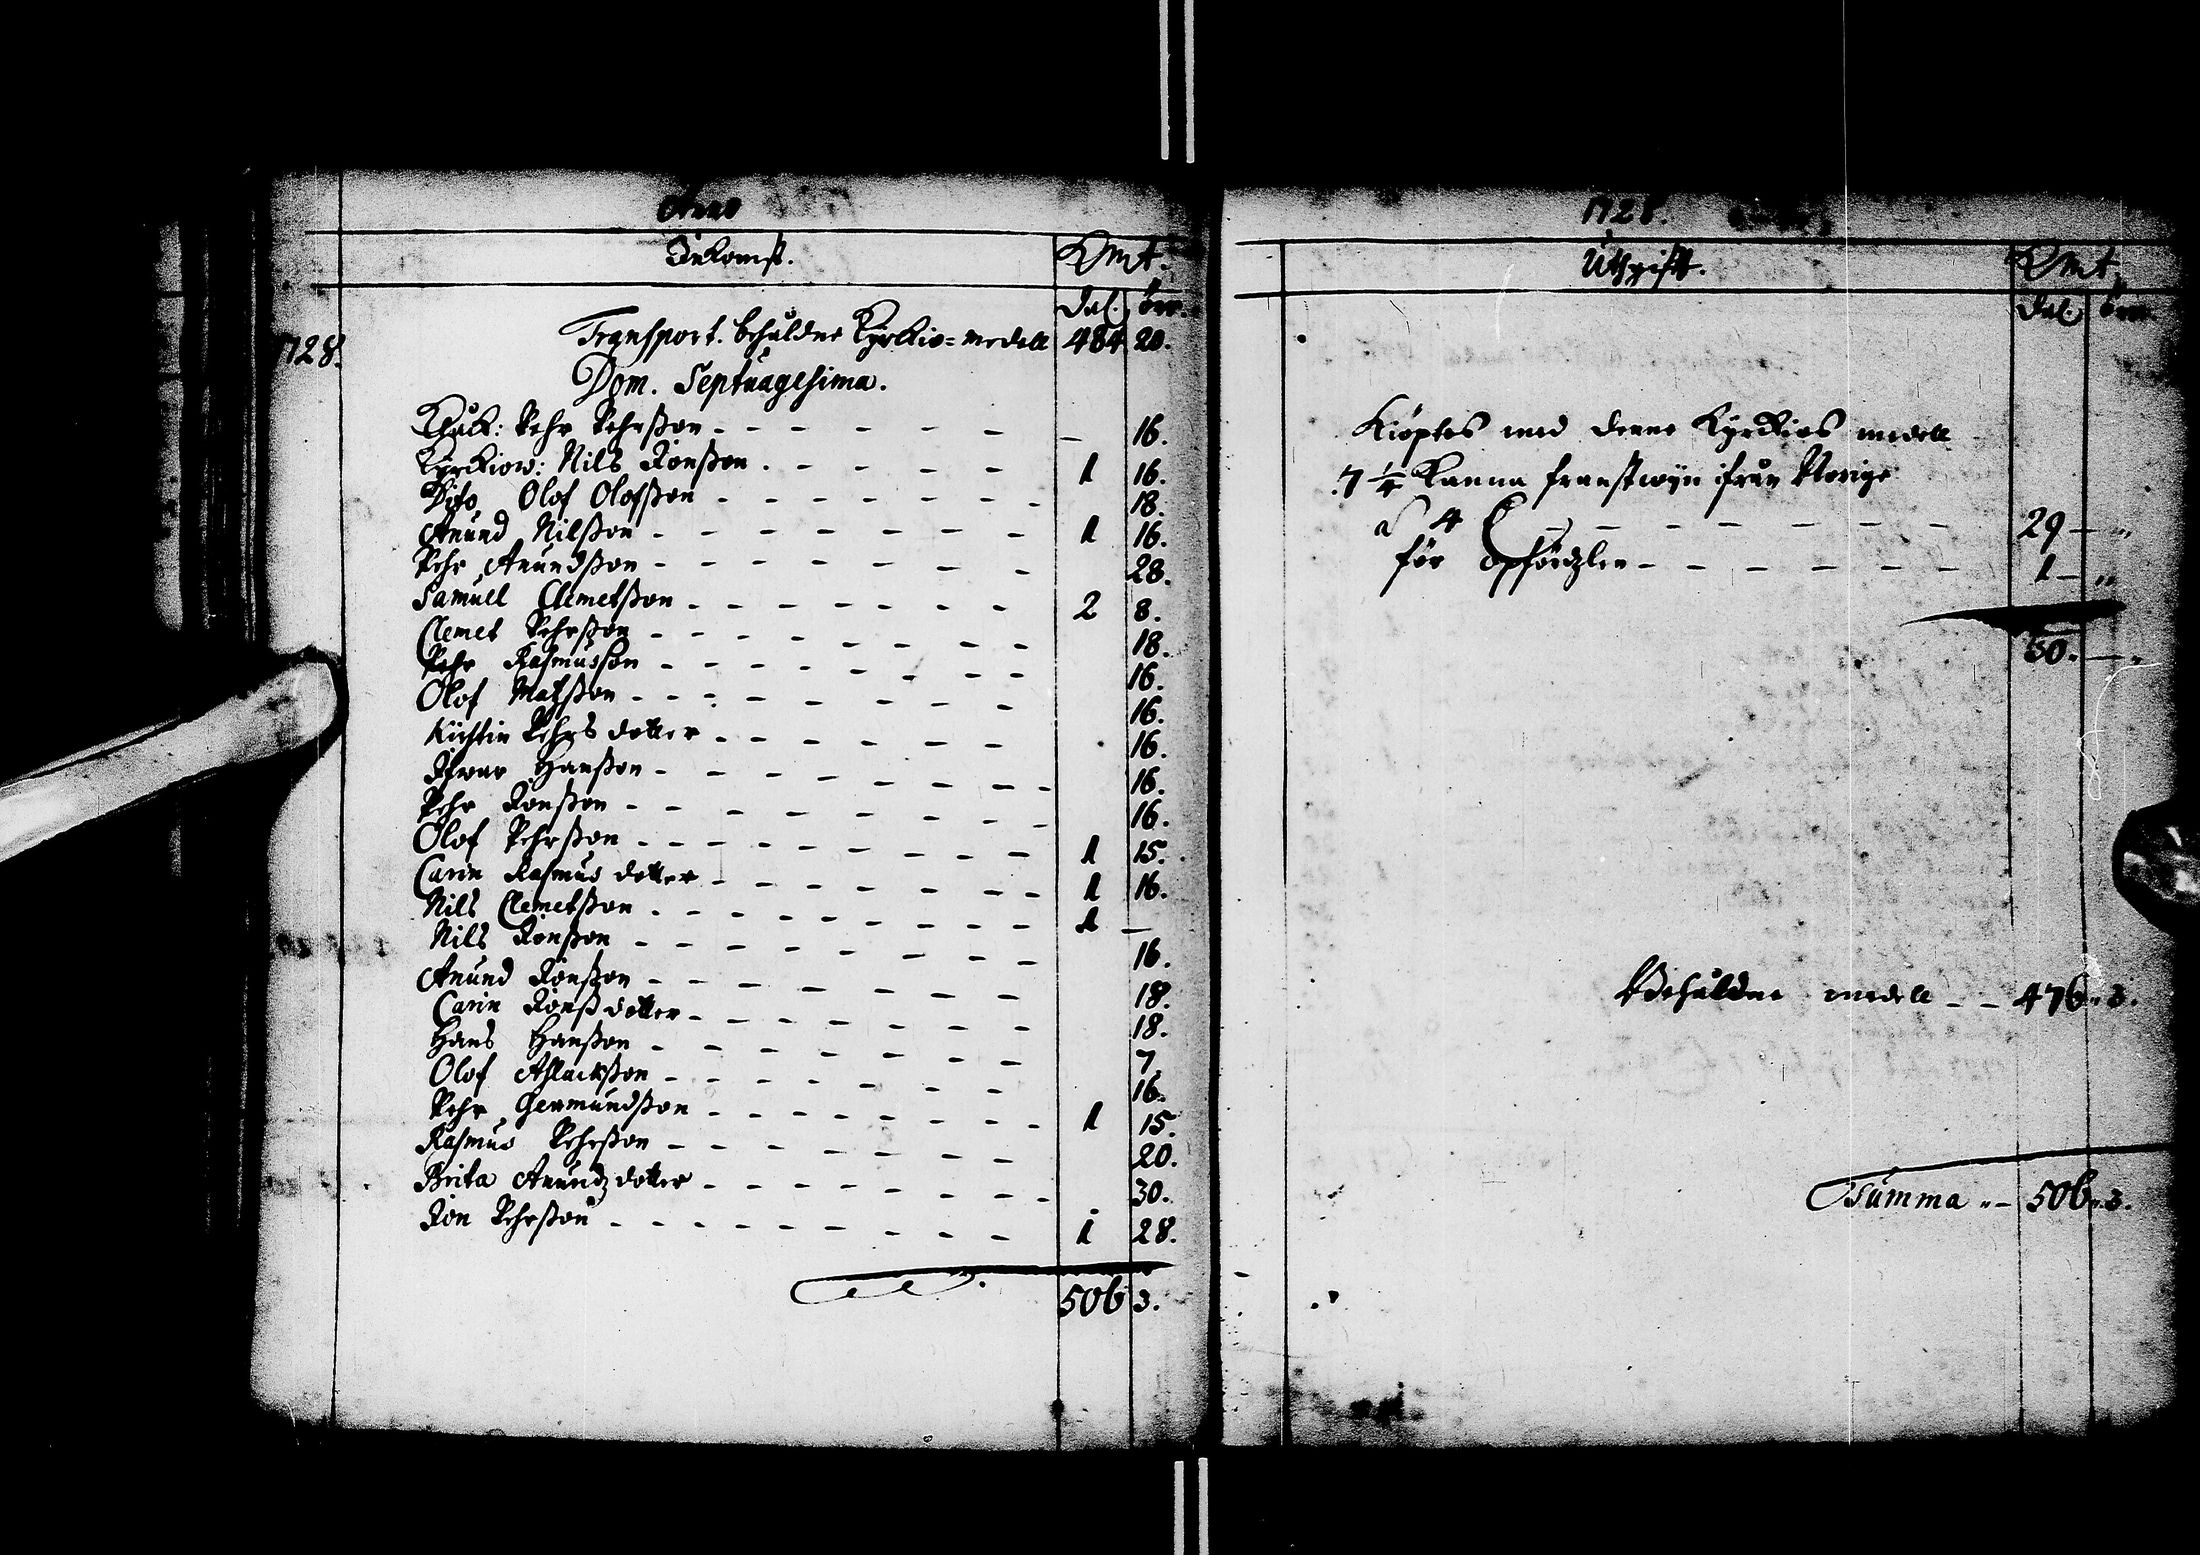 Anno
Inkomst. Kmt.
Dal. öre.
1728. Transport. behåldne Kyrkio-medell 484 20.
Dom. Septuagesima.
Klåck: Pehr Pehrßon - - - - - - 16.
Kyrkiow: Nils Jonßon - - - - - 1 16.
Dito Olof Olofsßon - - - - - - 18.
Anund Nilsßon - - - - - - - 1 16.
Pehr Anundßon - - - - - - - 28.
Samuel Clemetßon - - - - - - - 2 8.
Clemet Pehrßon - - - - - - - 18.
Pehr Rasmusson - - - - - - - 16.
Olof Matßon - - - - - - - 16.
Kirstin Pehrs dotter - - - - - - 16.
Ifwar Hanßon - - - - - - - 16.
Pehr Jonßon - - - - - - - 16.
Olof Pehrßon - - - - - - - 1 15.
Carin Rasmus dotter - - - - - - 1 16.
Nils Clemetßon - - - - - - - 1 —
Nils Jonßon - - - - - - - 16.
Anund Jonßon - - - - - - - 18.
Carin Jonß dotter - - - - - - 18.
Hans Hanßon - - - - - - - 7.
Olof Aslackßon - - - - - - 16.
Pehr Germundßon - - - - - - 1 15.
Rasmus Pehrßon - - - - - - 20.
Brita Anundz dotter - - - - - - 30.
Jon Pehrßon - - - - - - - 1 28.
506 3.
1728.
Uthgift. Kmt.
Dal. öre.
Kiöptes med denne Kyrkios medell
7 1/4 Kanna franstwyn ifrån Norige
a 4 - - - - - - 29 - "
för opfördzlen - - - - - - 1 - "
30. - "
Behåldne medell - - 476 " 3.
Summa " - 506 " 3.